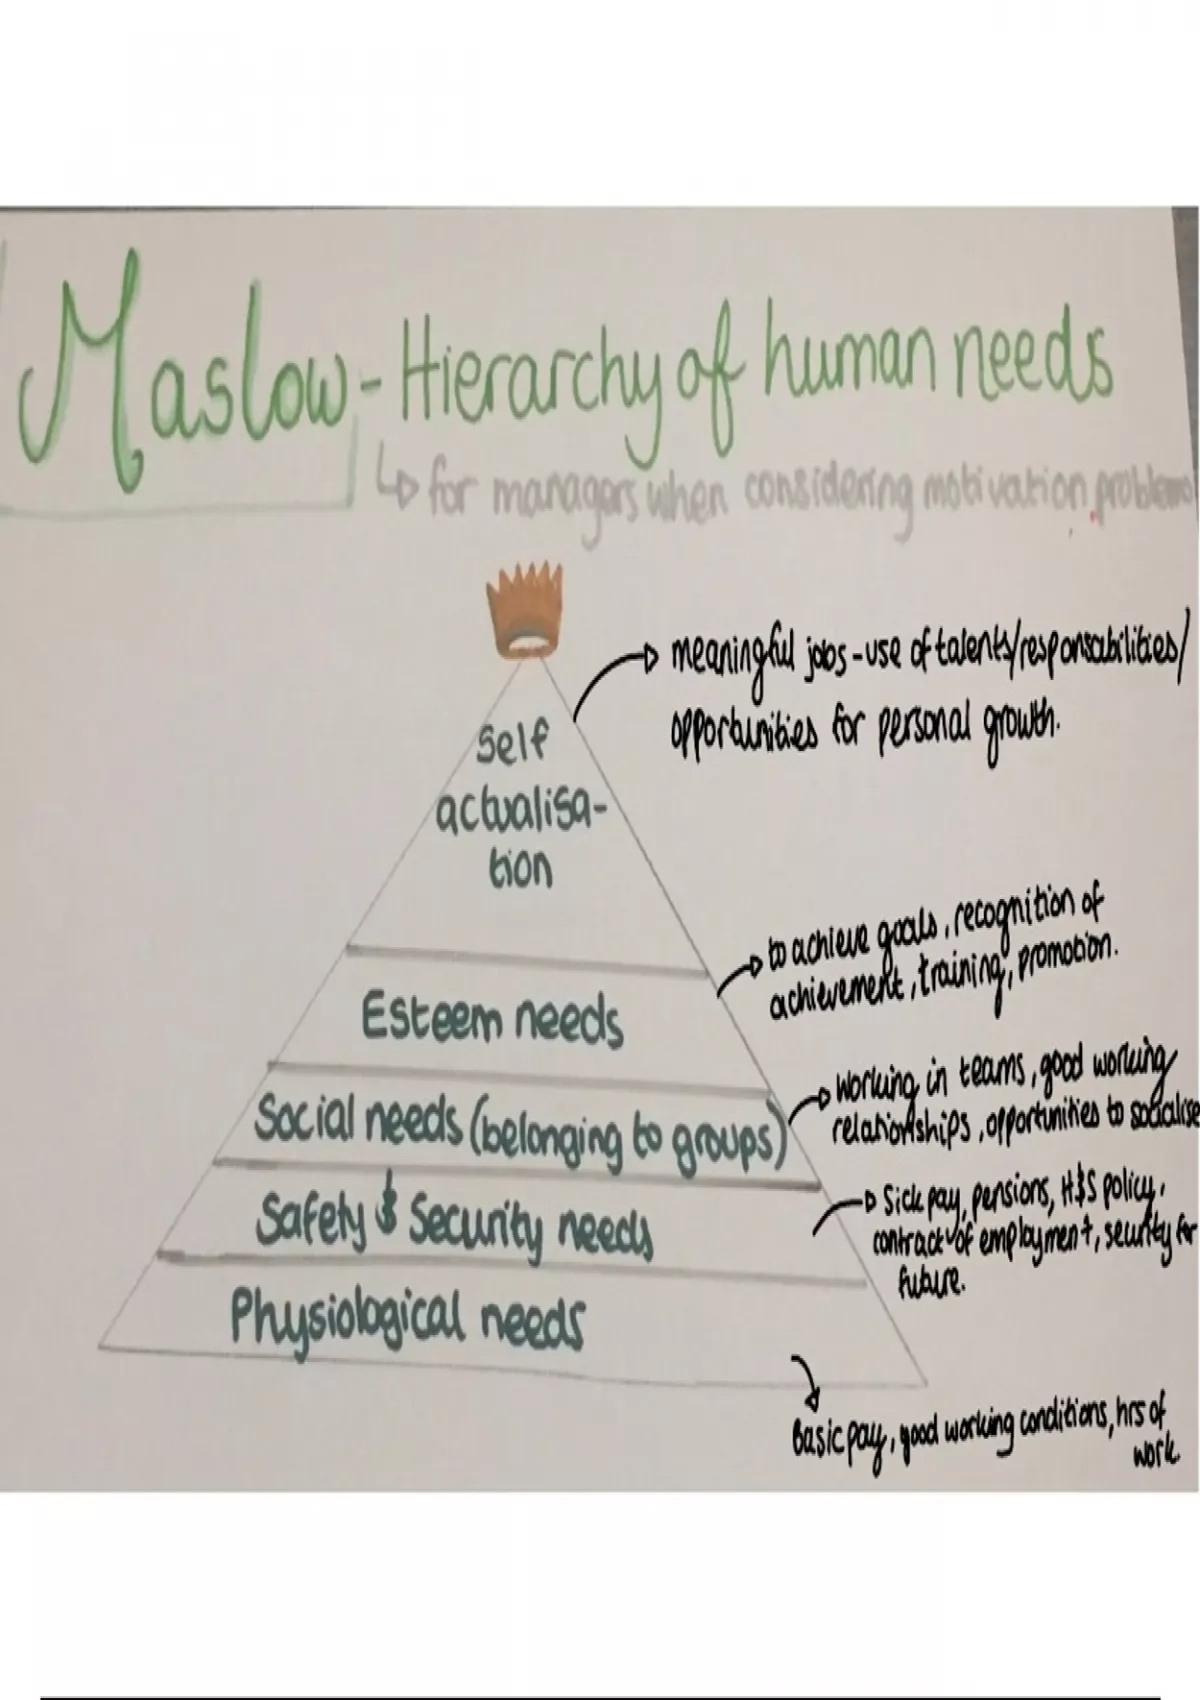 Maslow - Hierarchy of human needs
↳ for managers when considering motivation problems
meaningful jobs - use of talents/responsabilities/
opportunities for personal growth.
Self
actualisa-
tion
to achieve goals, recognition of
achievement, training, promotion.
Esteem needs
working in teams, good working
relationships, opportunities to socialise
Social needs (belonging to groups)
Sick pay, pensions, H&S policy,
contract of employment, security for
future.
Safety & Security needs
Physiological needs
Basic pay, good working conditions, hrs of
work.